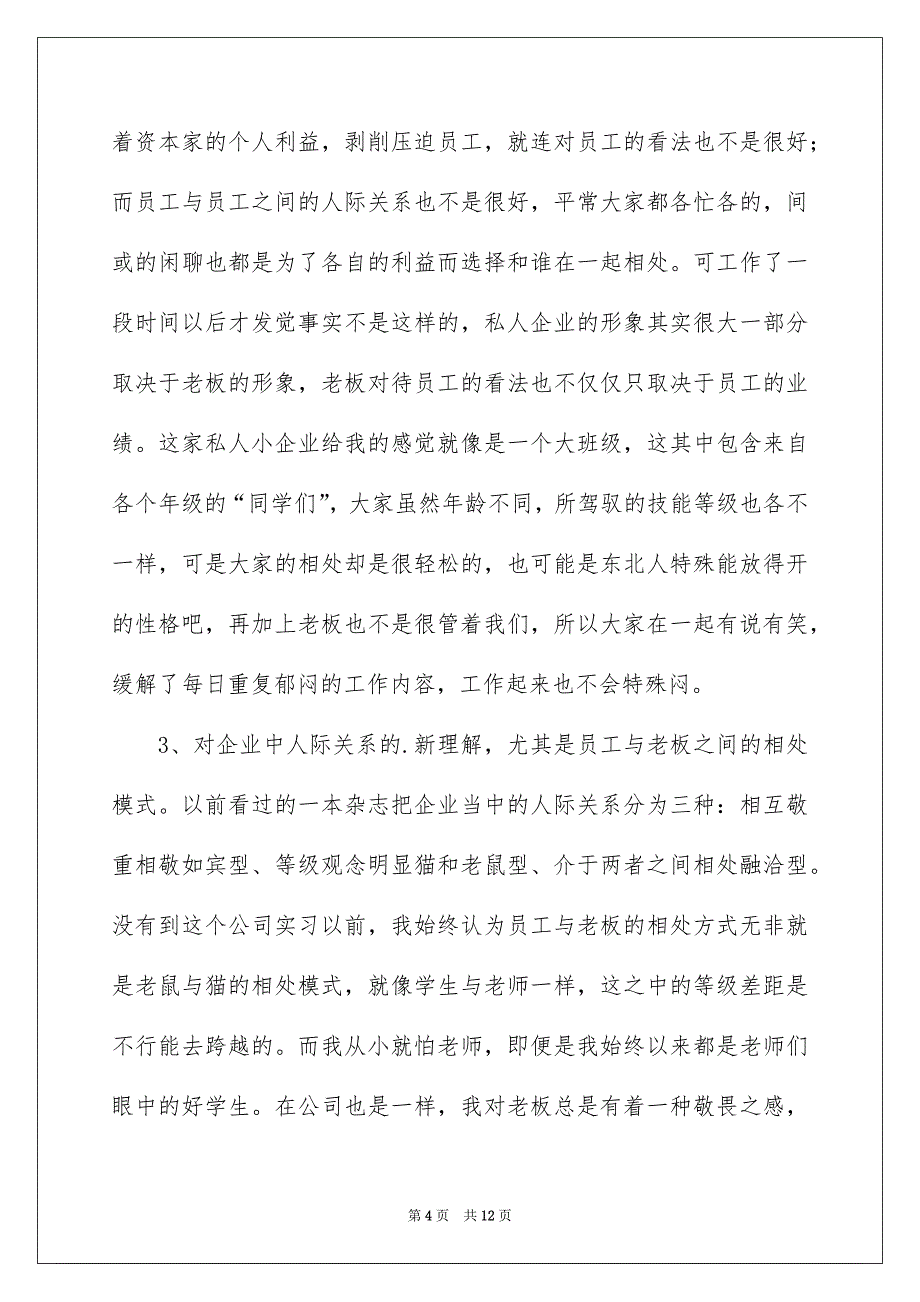 着资本家的个人利益，剥削压迫员工，就连对员工的看法也不是很好；
而员工与员工之间的人际关系也不是很好，平常大家都各忙各的，间
或的闲聊也都是为了各自的利益而选择和谁在一起相处。可工作了一
段时间以后才发觉事实不是这样的，私人企业的形象其实很大一部分
取决于老板的形象，老板对待员工的看法也不仅仅只取决于员工的业
绩。这家私人小企业给我的感觉就像是一个大班级，这其中包含来自
各个年级的“同学们”，大家虽然年龄不同，所驾驭的技能等级也各不
一样，可是大家的相处却是很轻松的，也可能是东北人特殊能放得开
的性格吧，再加上老板也不是很管着我们，所以大家在一起有说有笑，
缓解了每日重复郁闷的工作内容，工作起来也不会特殊闷。
3、对企业中人际关系的.新理解，尤其是员工与老板之间的相处
模式。以前看过的一本杂志把企业当中的人际关系分为三种：相互敬
重相敬如宾型、等级观念明显猫和老鼠型、介于两者之间相处融洽型。
没有到这个公司实习以前，我始终认为员工与老板的相处方式无非就
是老鼠与猫的相处模式，就像学生与老师一样，这之中的等级差距是
不行能去跨越的。而我从小就怕老师，即便是我始终以来都是老师们
眼中的好学生。在公司也是一样，我对老板总是有着一种敬畏之感，
第 4 页 共 12 页